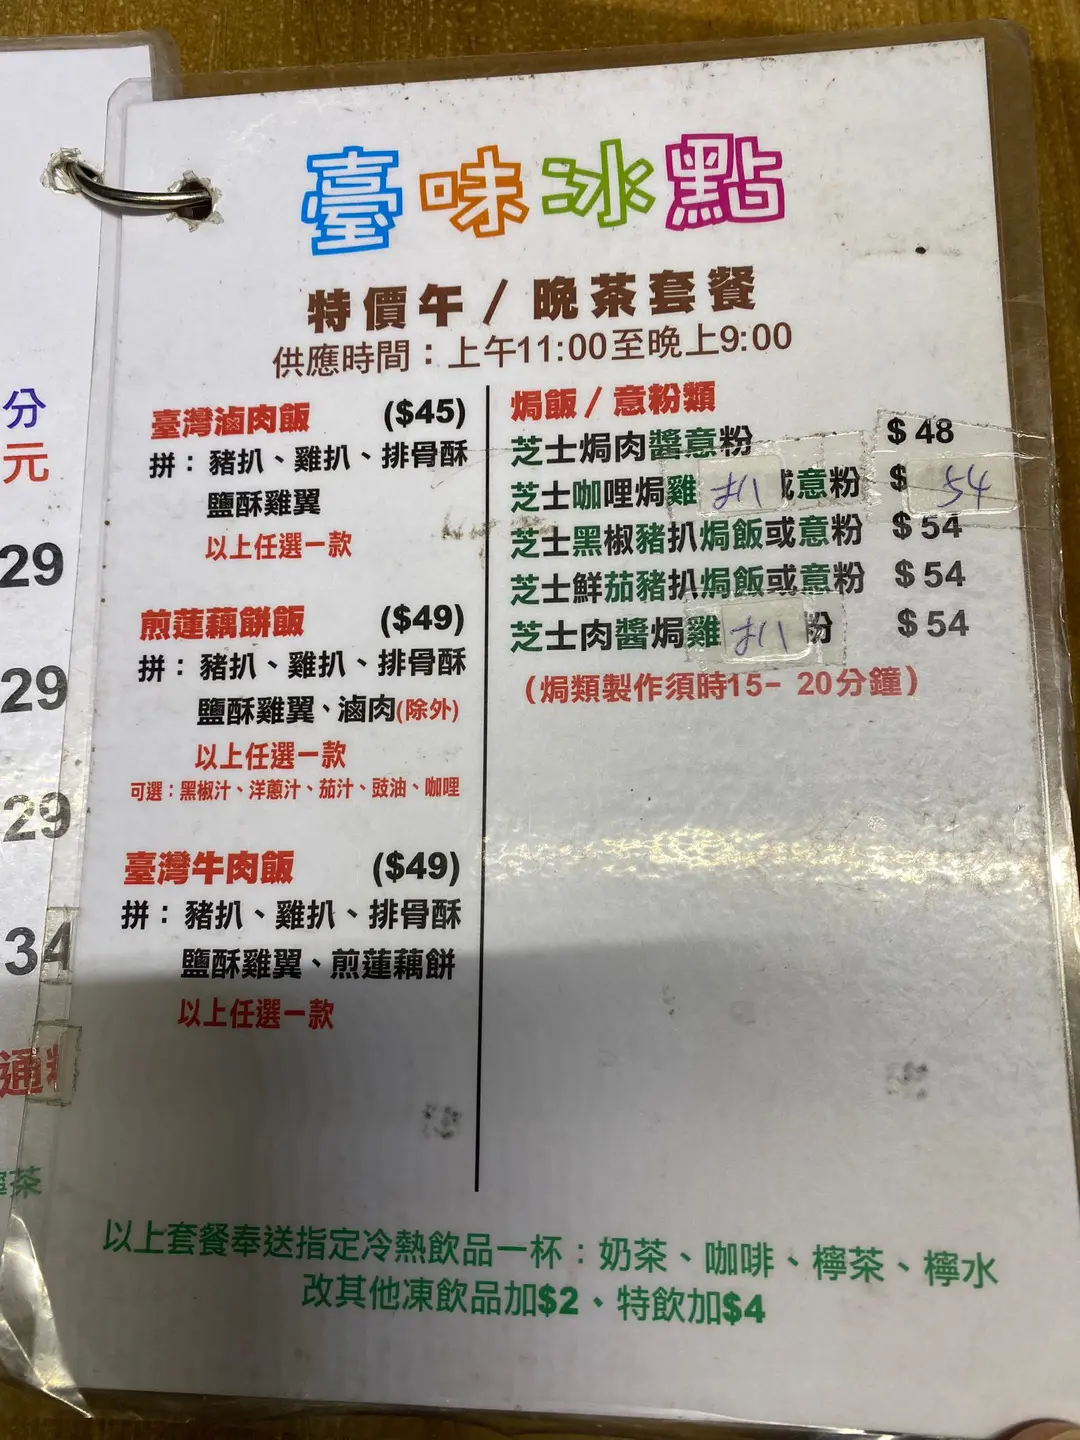 分
元
29
29
29
34
通
茶
臺味冰點
特價午 / 晚茶套餐
供應時間：上午11:00至晚上9:00
臺灣滷肉飯 ($45)
拼：豬扒、雞扒、排骨酥
鹽酥雞翼
以上任選一款
煎蓮藕餅飯 ($49)
拼：豬扒、雞扒、排骨酥
鹽酥雞翼、滷肉(除外)
以上任選一款
可選：黑椒汁、洋蔥汁、茄汁、豉油、咖哩
臺灣牛肉飯 ($49)
拼：豬扒、雞扒、排骨酥
鹽酥雞翼、煎蓮藕餅
以上任選一款
焗飯 / 意粉類
芝士焗肉醬意粉 $48
芝士咖哩焗雞扒或意粉 $54
芝士黑椒豬扒焗飯或意粉 $54
芝士鮮茄豬扒焗飯或意粉 $54
芝士肉醬焗雞扒粉 $54
（焗類製作須時15- 20分鐘）
以上套餐奉送指定冷熱飲品一杯：奶茶、咖啡、檸茶、檸水
改其他凍飲品加$2、特飲加$4